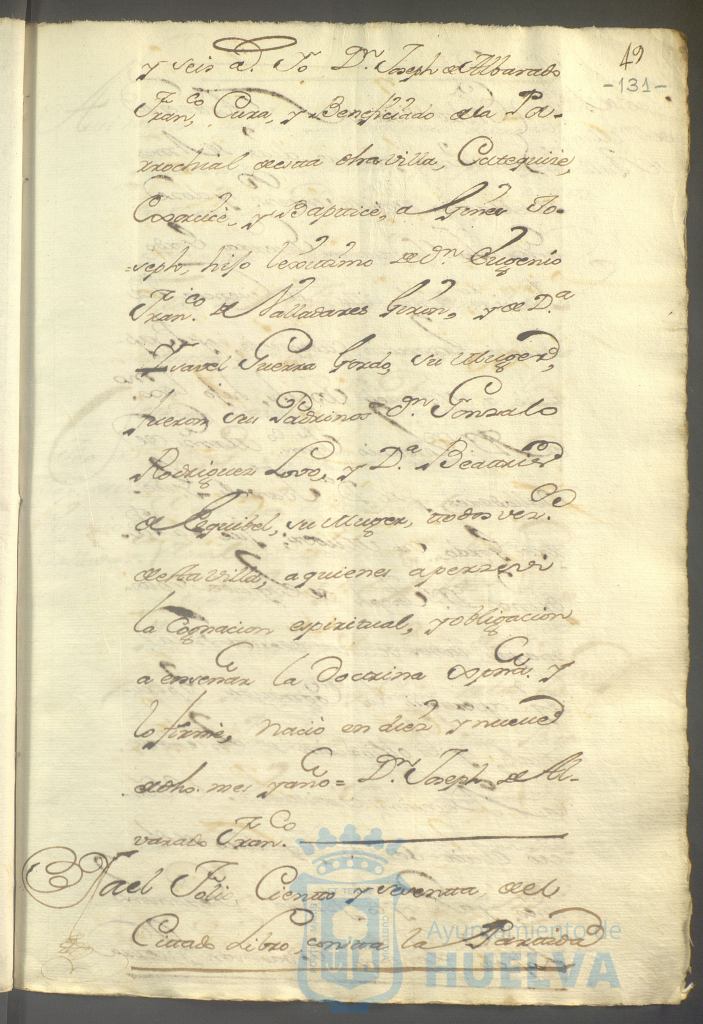 49
-131-
y seis a.s Yo Dn. Joseph de Albarado
Fran.co Cura, y Beneficiado de la Pa-
rrochial de esta dha villa, Catequize,
y Baptice, a Gines Jo-
=seph, hijo lexitimo de dn. Eugenio
Fran.co de Valladares Giron, y de D.a
Ysavel Guerra Gordo, su Muger,
fueron sus Padrinos dn. Gonzalo
Rodriguez Lovo, y D.a Beatriz
de Esquibel, su Muger, todos vez.os
de esta villa, a quienes aperzivi
la Cognacion espiritual, y obligacion
a enseñar la Doctrina Xptna. y
lo firmé, nació en diez y nueve
de dho. mes y año = Dn. Joseph de Al-
varado Fran.co
Y al Folio Ciento y setenta del
Cittado Libro consta la Partida
Ayuntamiento de
HUELVA